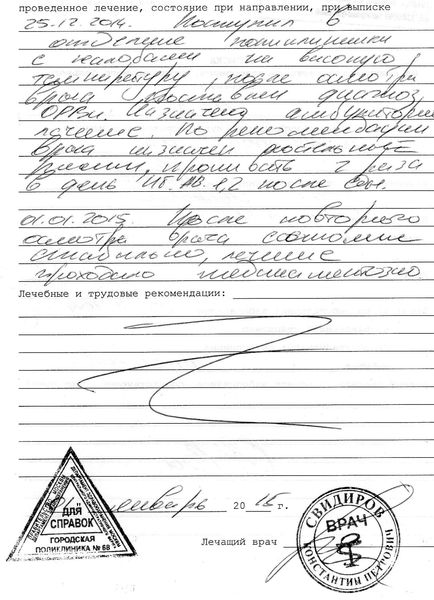 проведенное лечение, состояние при направлении, при выписке
25.12.2014. Поступил в
отделение поликлиники
с жалобами на высокую
температуру, после осмотра
врача поставлен диагноз
ОРВи. Назначено амбулаторное
лечение. По рекомендации
врача назначен
2 раза
в день после еды.
01.01.2015. После повторного
осмотра врача состояние
стабильно, лечение
проходило медикаментозно
Лечебные и трудовые рекомендации:
январь 2015 г.
ДЛЯ
СПРАВОК
ГОРОДСКАЯ
ПОЛИКЛИНИКА № 68
Лечащий врач
СВИДИРОВ
ВРАЧ
КОНСТАНТИН ПЕТРОВИЧ